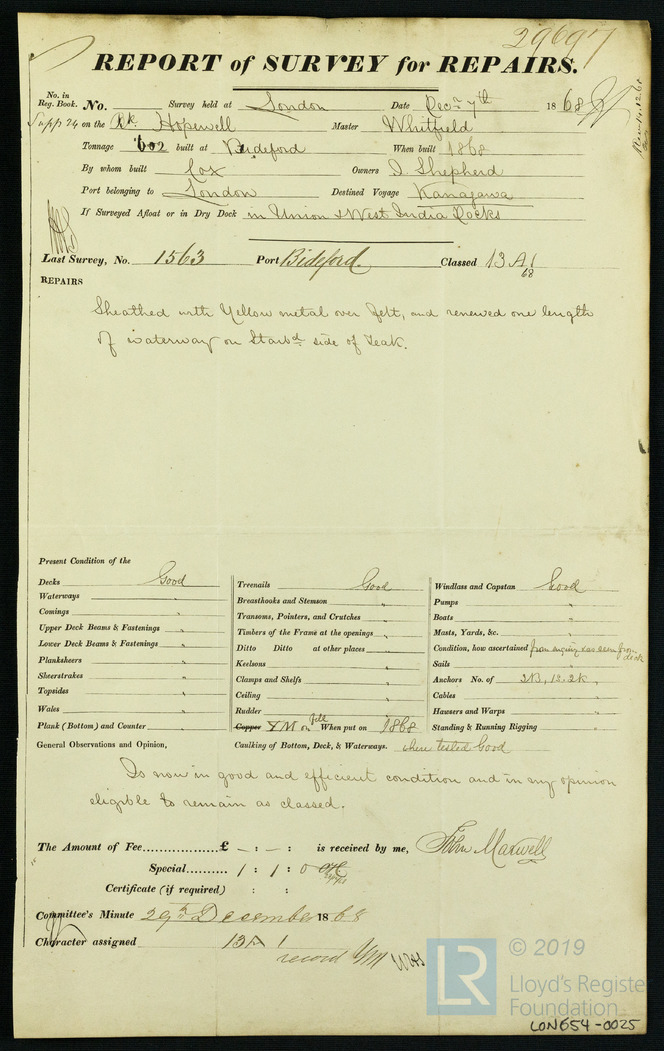 29697
REPORT of SURVEY for REPAIRS.
No. in Reg. Book. No. Survey held at London Date Decr 7th 1868
Supp 24 on the Bk. Hopewell Master Whitfield
Tonnage 602 built at Bideford When built 1868
By whom built Cox Owners J. Shepherd
Port belonging to London Destined Voyage Kanagawa
If Surveyed Afloat or in Dry Dock in Union & West India Docks
Last Survey, No. 1563 Port Bideford Classed 13 A 1 68
REPAIRS
Sheathed with Yellow metal over felt, and renewed one length
of waterway on Starbd side of Teak.
Present Condition of the
Decks Good
Waterways "
Comings "
Upper Deck Beams & Fastenings "
Lower Deck Beams & Fastenings "
Planksheers "
Sheerstrakes "
Topsides "
Wales "
Plank (Bottom) and Counter "
Treenails Good
Breasthooks and Stemson "
Transoms, Pointers, and Crutches "
Timbers of the Frame at the openings "
Ditto Ditto at other places "
Keelsons "
Clamps and Shelfs "
Ceiling "
Rudder "
Copper YM on felt When put on 1868
Windlass and Capstan Good
Pumps "
Boats "
Masts, Yards, &c. "
Condition, how ascertained from enquiry & as seen from deck
Sails "
Anchors No. of 3B, 1S. 2K. "
Cables "
Hawsers and Warps "
Standing & Running Rigging "
General Observations and Opinion, Caulking of Bottom, Deck, & Waterways. where tested Good
Is now in good and efficient condition and in my opinion
eligible to remain as classed.
The Amount of Fee................£ - : - : is received by me, John Maxwell
Special.......... 1 : 1 : 0
Certificate (if required) : :
Committee's Minute 29th December 1868
Character assigned 13 A 1
record YM
© 2019
LR
Lloyd's Register
Foundation
LON654-0025